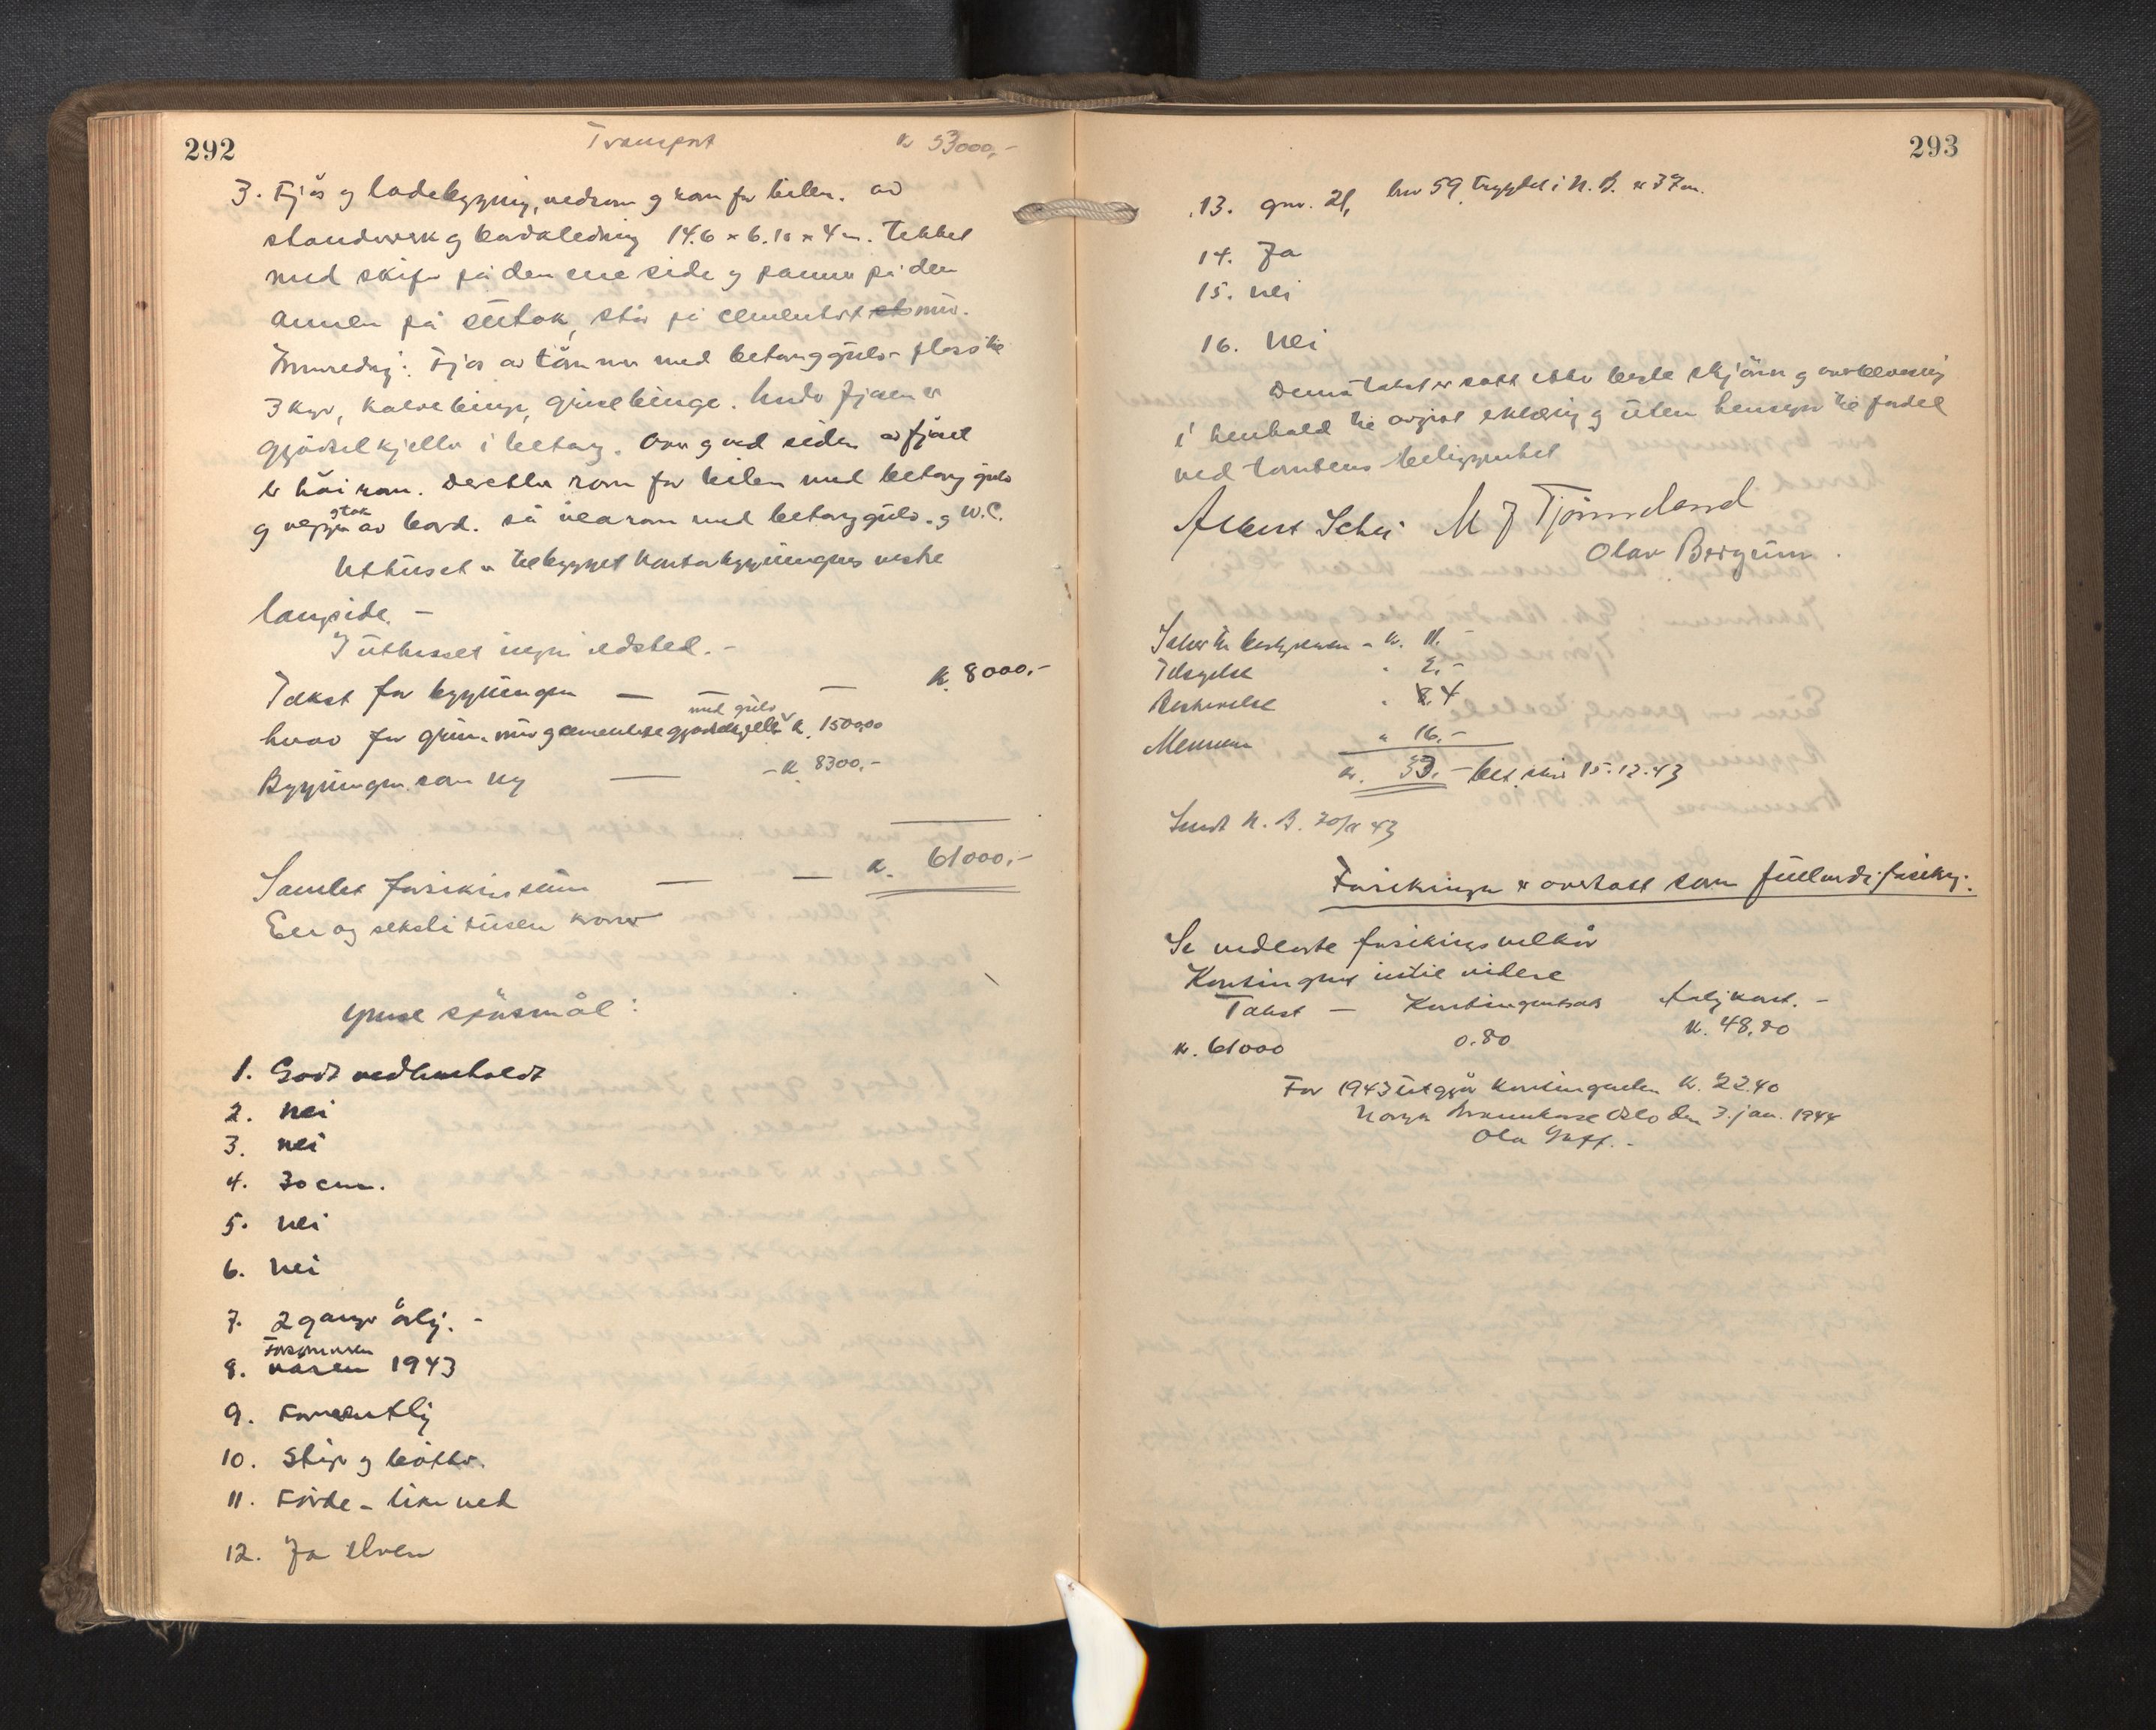 292
Transport kr 53000,-
3. Fjös og ladebygning, vedrom og rom for bilen. av
standverk og bordkledning 14.6 x 6.10 x 4 m. Tekket
med skifer på den ene side og panner på den
annen på sutak, står på cementert mur.
Innredning: Fjös av tömmer med betonggulv plass til
3 kyr, kalvebinge, grisebinge. Under fjösen er
gjödselkjeller i betong. Over og ved siden av fjöset
er höirom. Deretter rom for bilen med betonggulv
og vegger og tak av bord. så vedrom med betonggulv. og W.C.
Uthuset er tilbygget kontorbygningens vestre
langside. -
I uthuset ingen ildsted. -
Takst for bygningen — — kr. 8000.-
herav for grunnmur og cementert gjödselkjeller med gulv kr. 1500,00
Bygningen som ny — - kr. 8300,-
Samlet forsikringssum — — kr. 61000,-
En og seksti tusen kroner
Ymse spösmål:
1. Godt vedlikeholdt
2. Nei
3. Nei
4. 30 cm.
5. Nei
6. Nei
7. 2 ganger årlig. -
8. Forsommeren våren 1943
9. Forsvarlig
10. Stige og bötter.
11. Förde - like ved
12. Ja elven
293
13. gnr. 21, bnr 59, trygdet i N. B.
14. Ja
15. Nei
16. Nei
Denne takst er satt etter beste skjönn og overbevisning
i henhold til avgitt erklæring og uten hensyn til fordel
ved tomtens beliggenhet
Albert Schei M J Tjönneland
Olav Bergum.
kr. 11.-
Tilsigelse " 2.-
Beskrivelse " 4
Mennene " 16.-
kr. 33.- bet. 15.12.43
Sendt N. B. 43
Forsikringen er overtatt som fullverdiforsikring.
Se vedlagte forsikringsvilkår
Kontingent inntil videre
Takst — Kontingentsats Årlig kont. -
kr. 61000 0.80 kr. 48.80
For 1943 utgjör kontingenten kr. 22.40
Norges Brannkasse Oslo den 3. jan. 1944
Ola